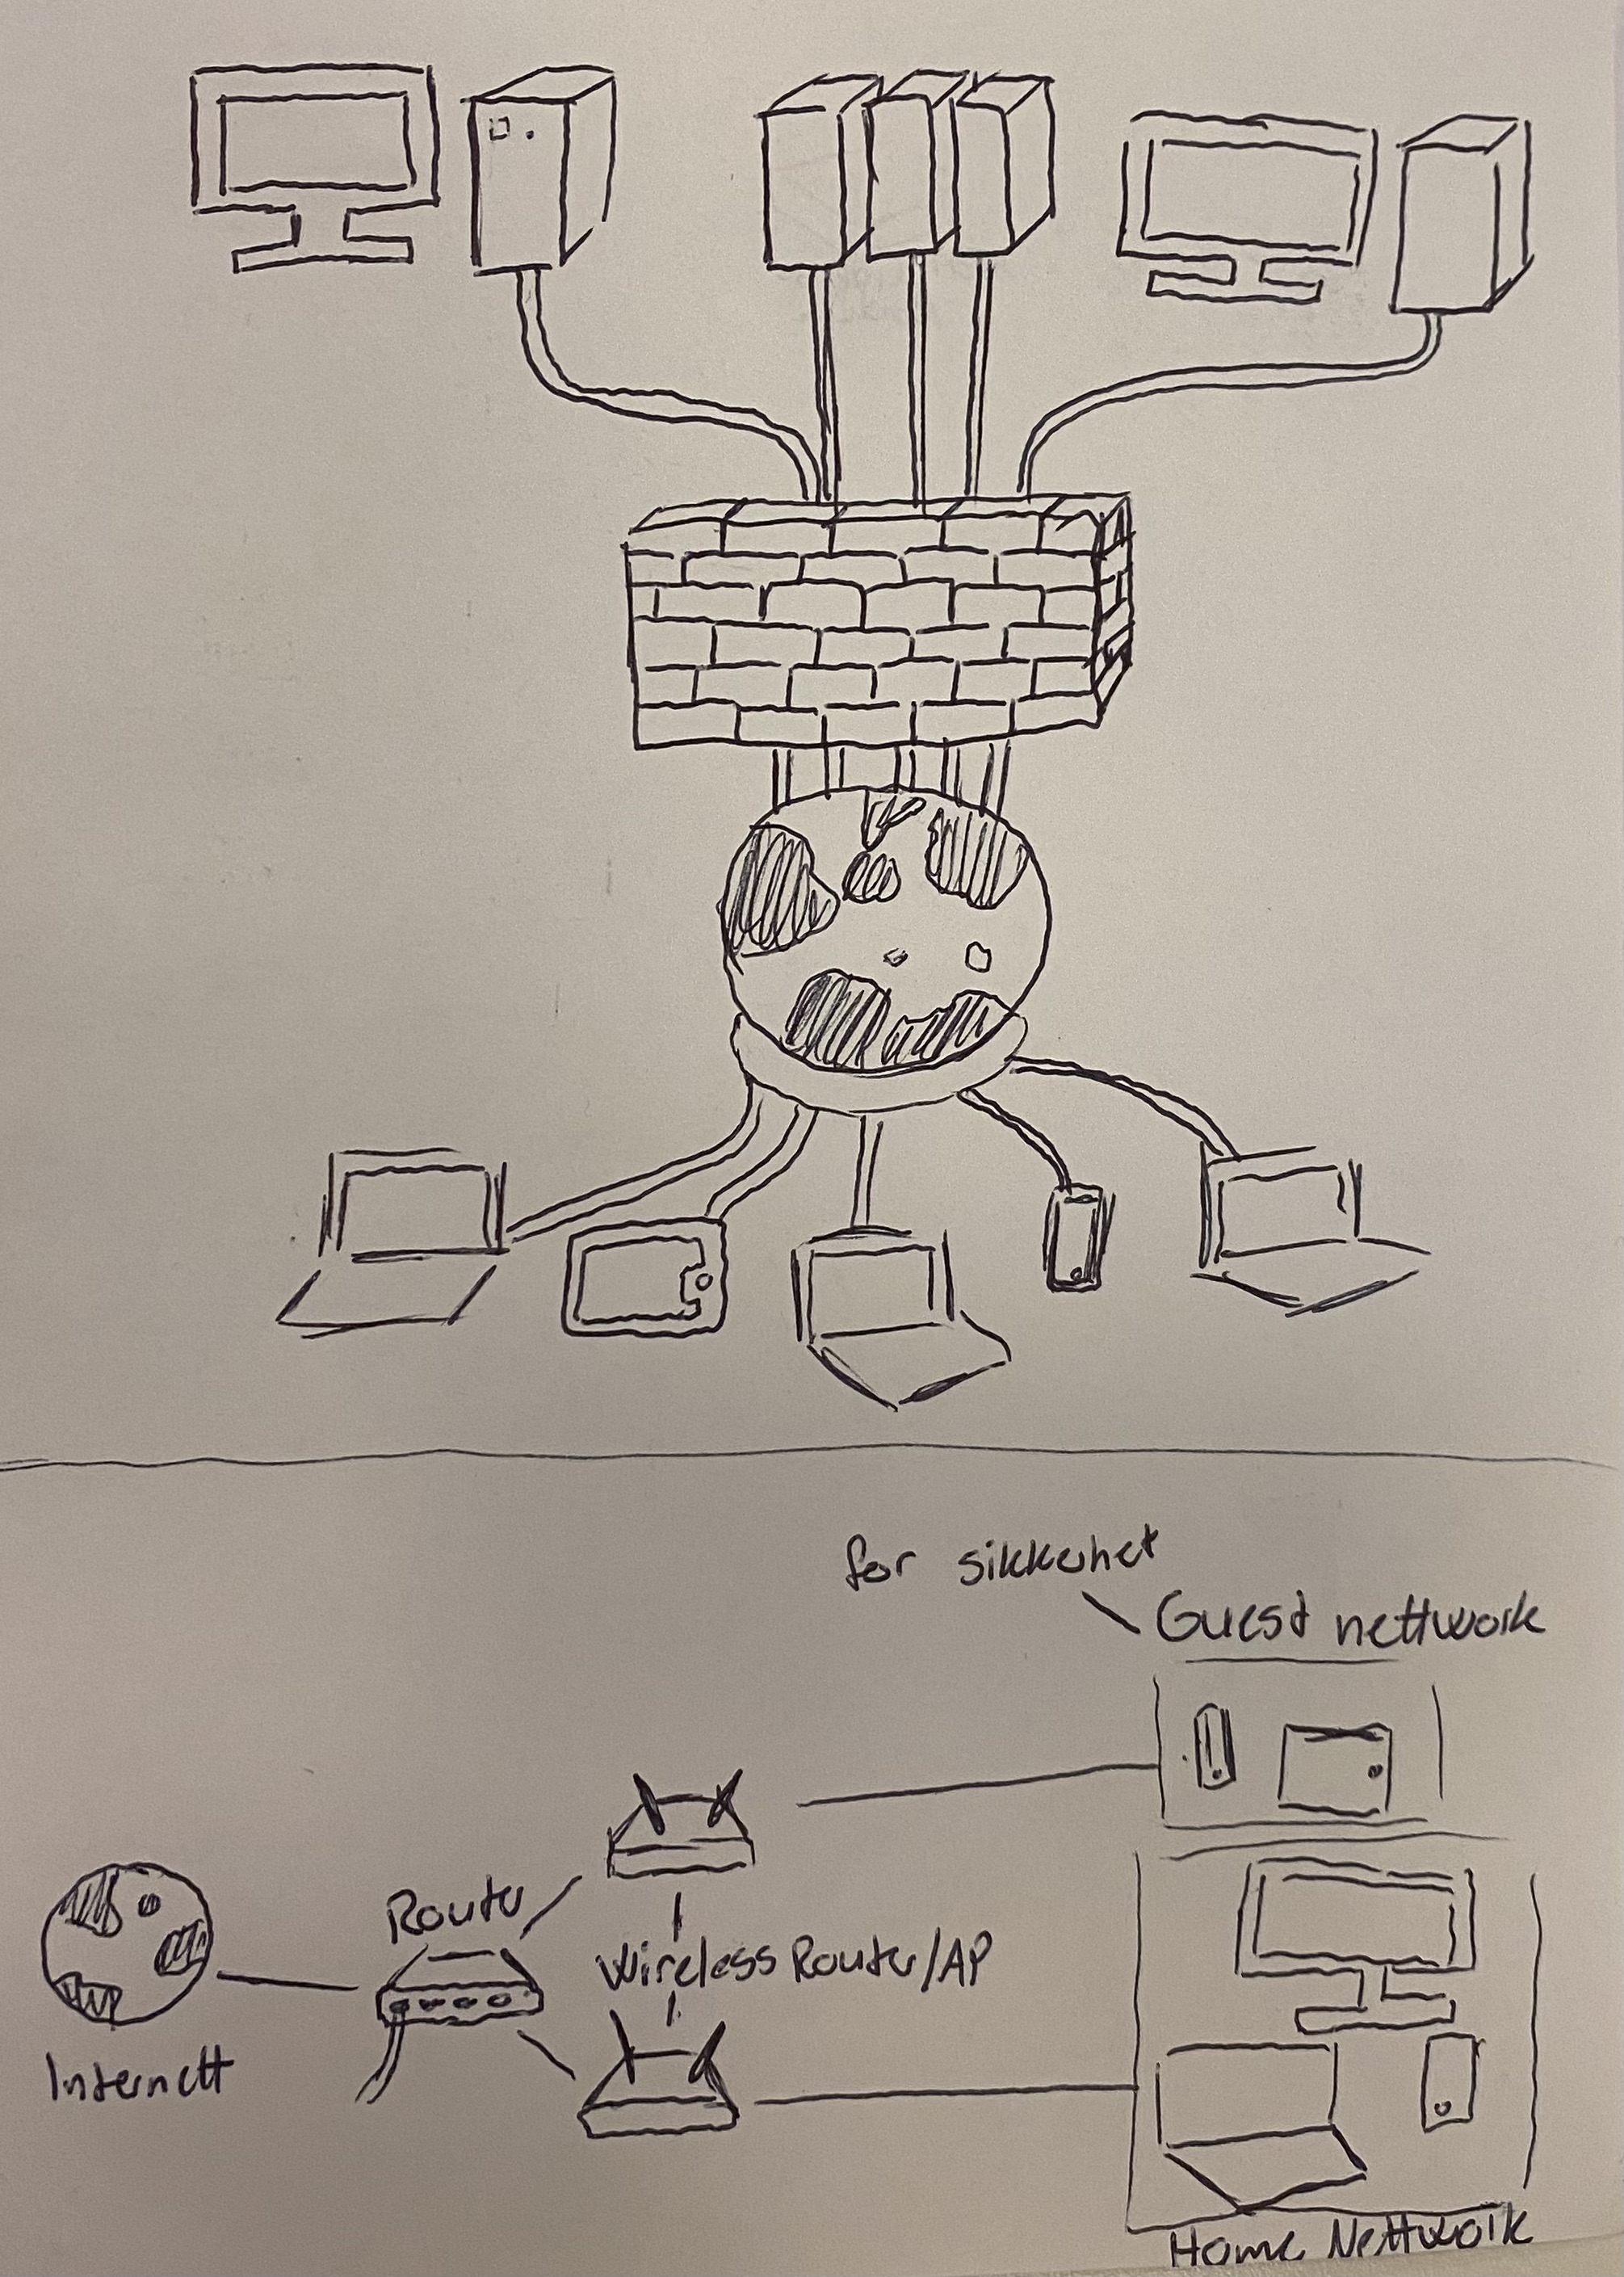 for sikkerhet
Guest nettwork
Router
Wireless Router/AP
Internett
Home Nettwork